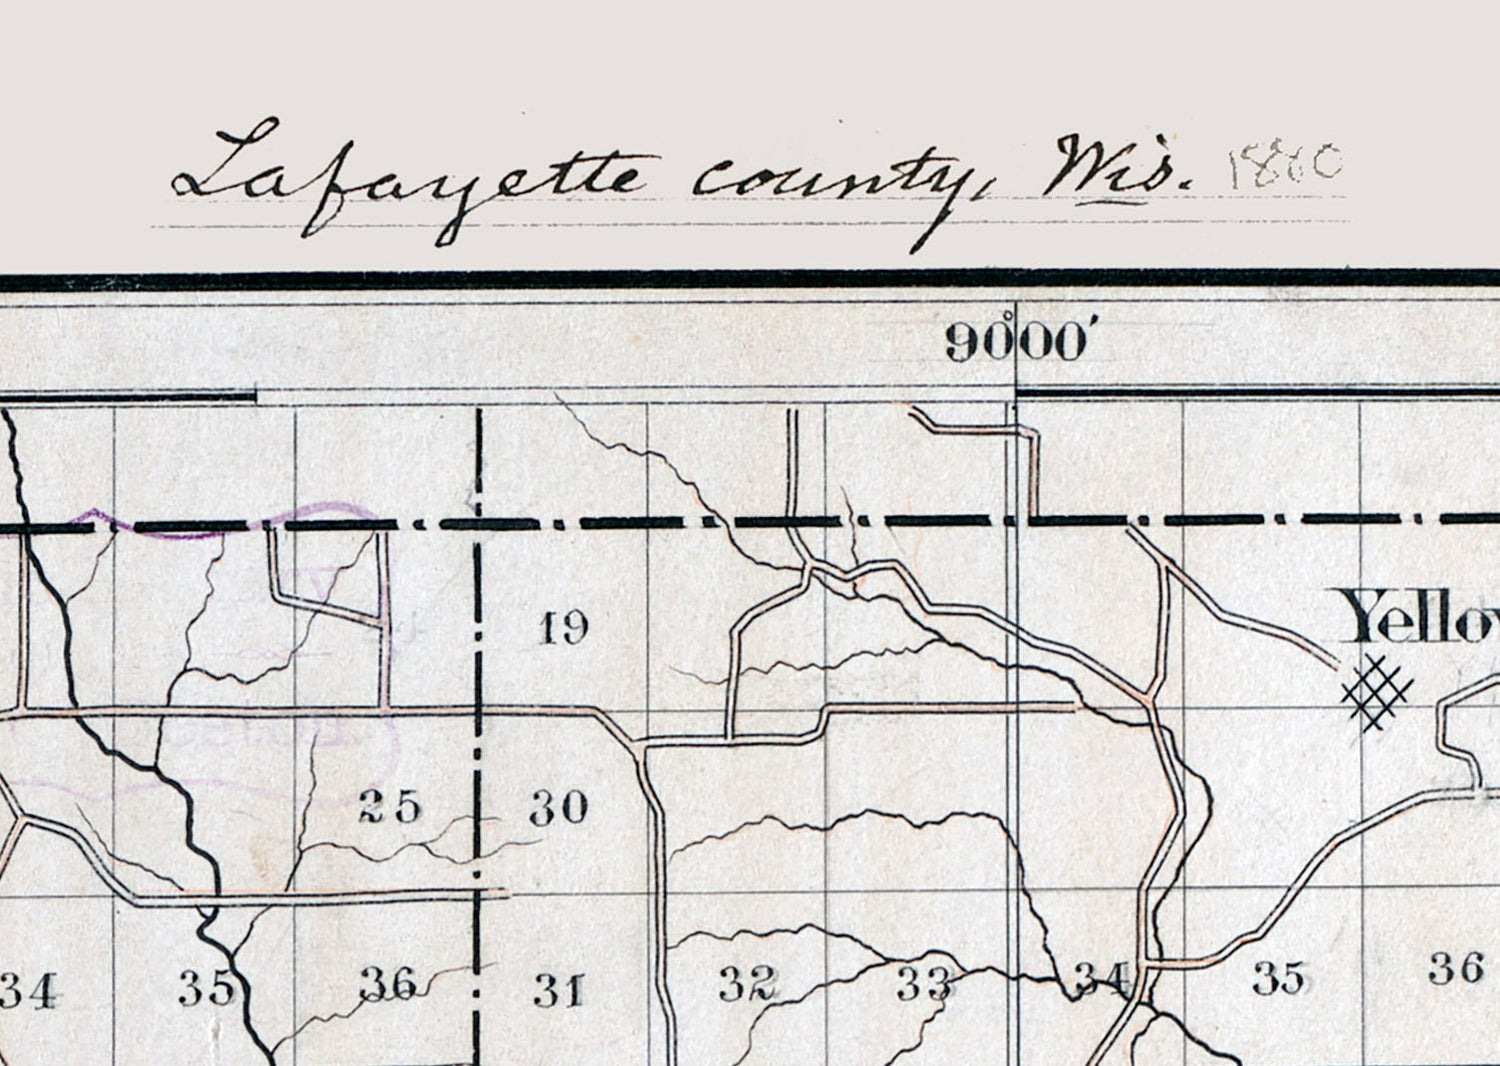 Lafayette county, Wis. 1880
90°00'
19
25 30
34 35 36 31 32 33 34 35 36